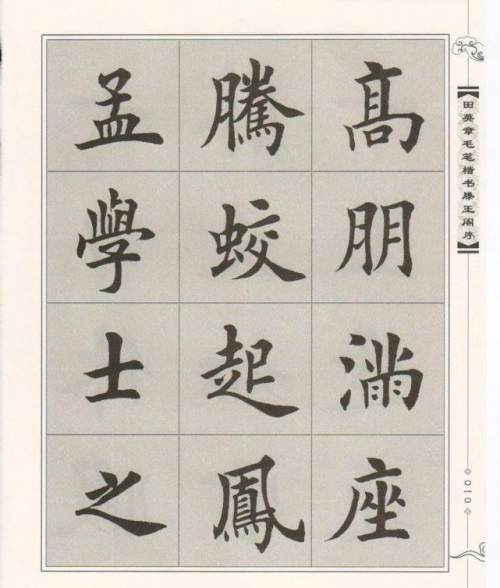 髙朋滿座
騰蛟起鳳
孟學士之
田英章毛笔楷书滕王阁序
010